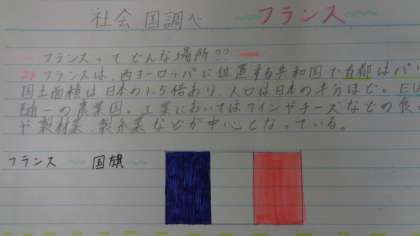 社会 国調べ フランス
フランスってどんな場所??
フランスは、西ヨーロッパに位置する共和国で首都はパ
国土面積は日本の1.5倍あり、人口は日本の半分ほど。EU
随一の農業国。工業においてはワインやチーズなどの食
や製材業、製糸業などが中心となっている。
フランス 国旗